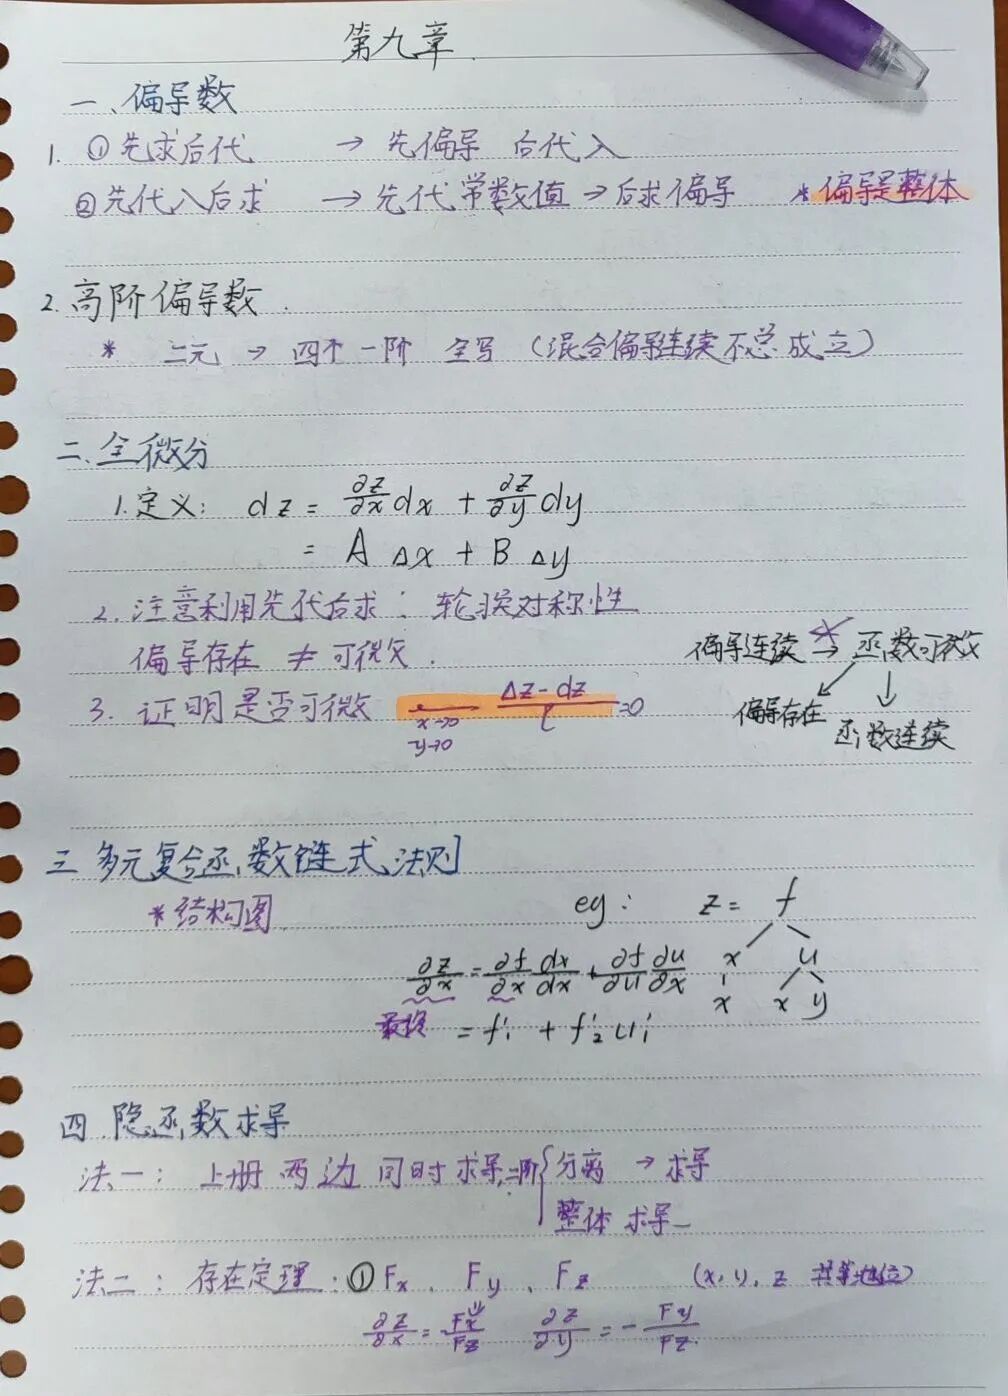 第九章.
一、偏导数
1. ①先求后代 → 先偏导 后代入
②先代入后求 → 先代常数值 → 后求偏导 * 偏导是整体
2. 高阶偏导数.
* 二元 → 四个一阶 全写 (混合偏导连续不总成立)
二.全微分
1.定义: dz = ∂z/∂x dx + ∂z/∂y dy
= A Δx + B Δy
2.注意利用先代后求: 轮换对称性
偏导存在 ≠ 可微.
偏导连续 → 函数可微
偏导存在
函数连续
3. 证明是否可微 x→0 y→0 Δz-dz/ℓ =0
三.多元复合函数链式法则
*结构图
eg: z = f
x u
x x y
∂z/∂x = ∂f/∂x dx/dx + ∂f/∂u ∂u/∂x
最终 = f'₁ + f'₂ u'₁
四.隐函数求导
法一: 上册 两边 同时求导,二阶{分离 → 求导
整体 求导
法二: 存在定理: ①Fx、Fy、Fz (x, y, z 共等地位)
∂z/∂x = Fx/Fz ∂z/∂y = - Fy/Fz.